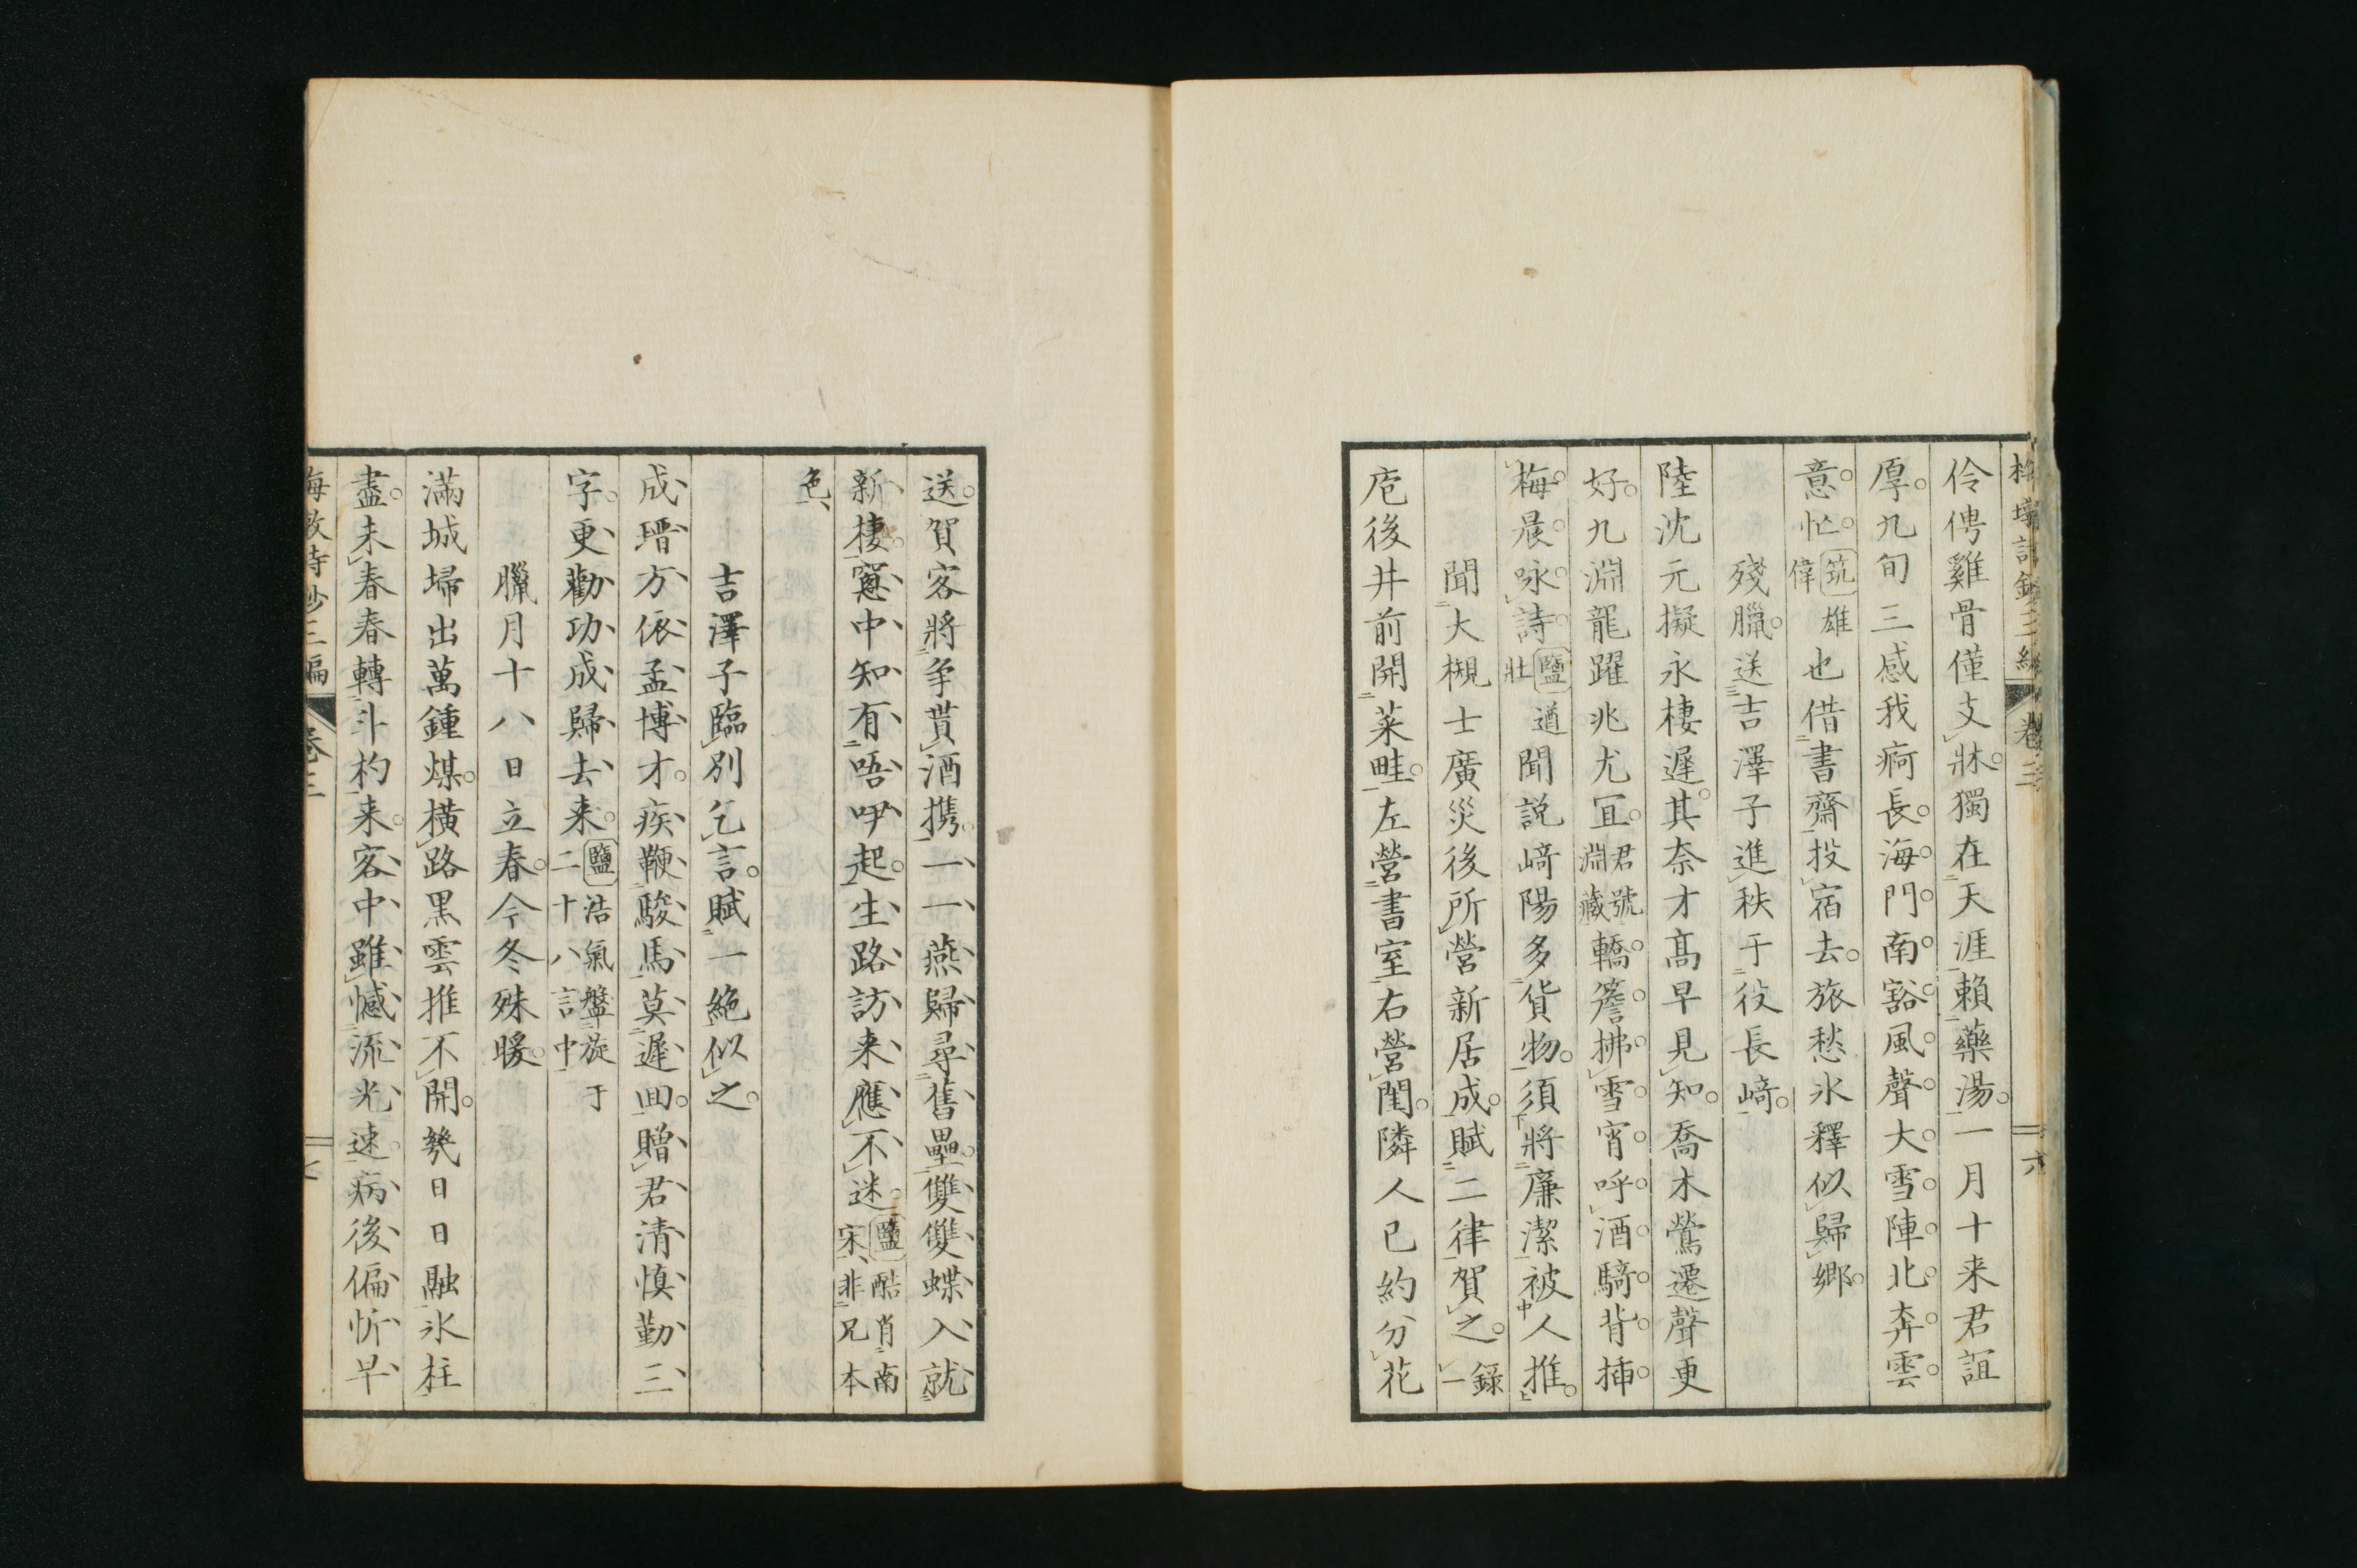 梅墩詩鈔三編 卷三 六
伶俜雞骨僅支牀獨在天涯賴藥湯一月十来君誼
厚九旬三感我痾長海門南豁風聲大雪陣北奔雲
意忙筑雄偉也借書齋投宿去旅愁氷釋似歸鄉
殘臘送吉澤子進秩于役長﨑
陸沈元擬永棲遲其奈才高早見知喬木鶯遷聲更
好九淵龍躍兆尤宜君號淵藏轎簷拂雪宵呼酒騎背揷
梅晨咏詩鹽遒壯聞説﨑陽多貨物須將廉潔被人推
聞大槻士廣災後所營新居成賦二律賀之錄一
庖後井前開菜畦左營書室右營閨隣人已約分花
送賀客將争貰酒携一一燕歸尋舊壘雙雙蝶入就
新棲窻中知有唔咿起生路訪来應不迷鹽酷肖南宋非兄本
色
吉澤子臨別乞言賦一絶似之
成瑨方依孟博才疾鞭駿馬莫遲回贈君清慎勤三
字更勸功成歸去来鹽浩氣盤旋于二十八言中
臘月十八日立春今冬殊暖
滿城埽出萬鍾煤橫路黒雲推不開幾日日融氷柱
盡未春春轉斗杓来客中雖憾流光速病後偏忻早
梅敦詩鈔三編 卷三